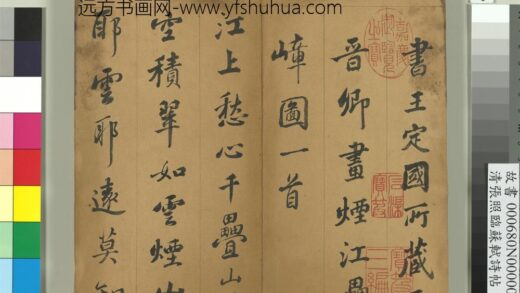 远方书画网--www.yfshuhua.com
書王定國所藏
晉卿畫煙江疊
嶂圖一首
江上愁心千疊山
空積翠如雲煙山
耶雲耶遠莫知
故書 000680N00000
清張照臨蘇軾詩帖